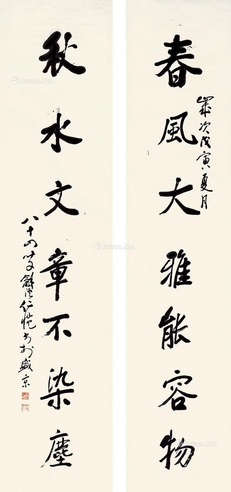 春風大雅能容物
歲次戊寅夏月
秋水文章不染塵
八十四叟
仁愷書於盛京